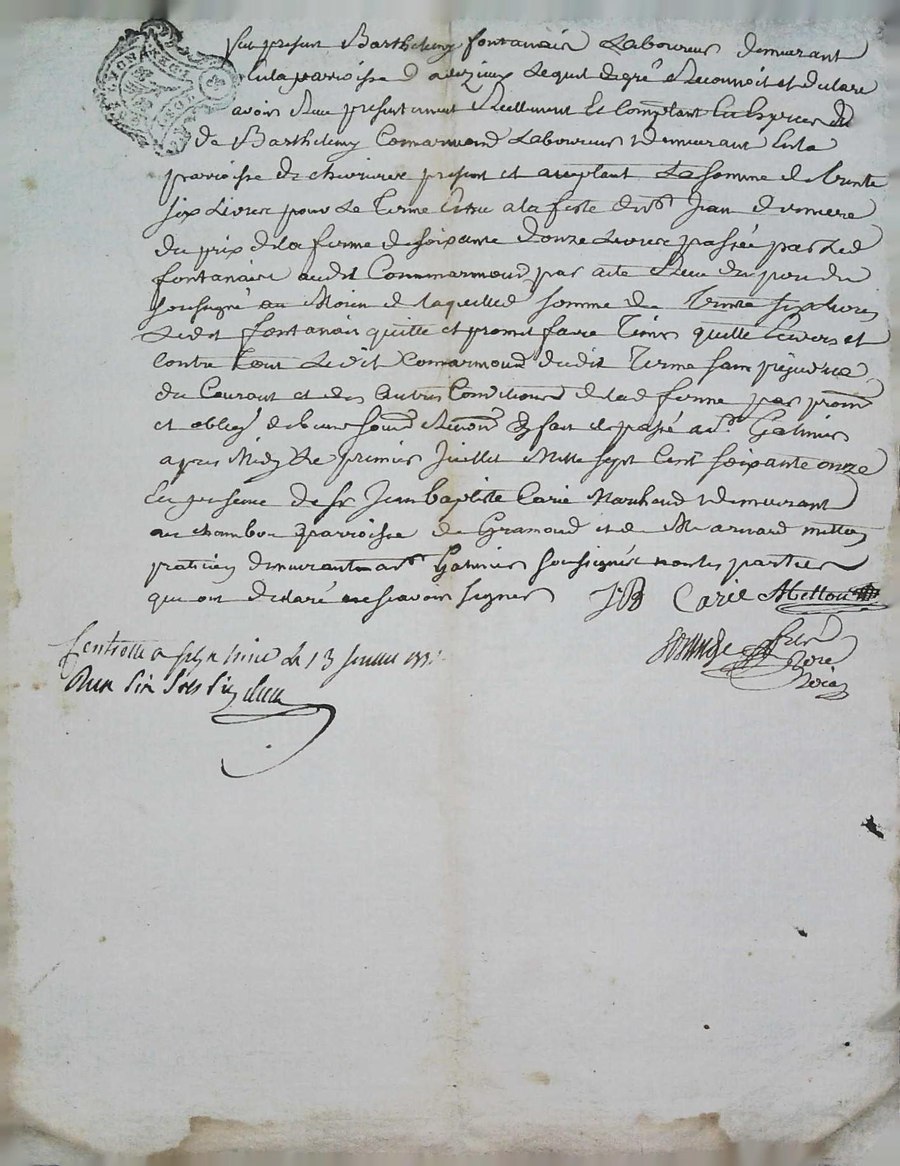 fut present Barthelemy fontanais Laboureur demeurant
en la parroisse d aveizieux Lequel de gré a Reconnoit et declare
avoir Reçu presentement Reellement et Comptant En Especes
de Barthelemy Comarmond Laboureur demeurant En la
parroisse de chevrieres present et acceptant La somme de trente
six Livres pour Le terme Echu a la feste de st Jean derniere
du prix de la ferme de soixante douze Livres passée par Led
fontanais audit Commarmond par acte Recu du
soussigné au Moien de laquelle somme de trente six livres
Ledit fontanais quitte et promet faire tenir quitte Envers et
contre tout Ledit Comarmond dudit terme sans prejudice
du Courant et des autres Conditions de lad ferme par prom
et oblig fait et passé a st Galmier
apres Midy Le premier Juillet Mille sept Cent soixante onze
En presence de sr Jean baptiste Carie Marchand demeurant
au chambon parroisse de Gramond et de Me arnaud mettou
praticien demeurant a st Galmier soussignés non les parties
qui ont declaré ne scavoir signer JB Carie Mettou
Controllé a Galmier Le 13 Juillet 1771
Reçu six sols six den